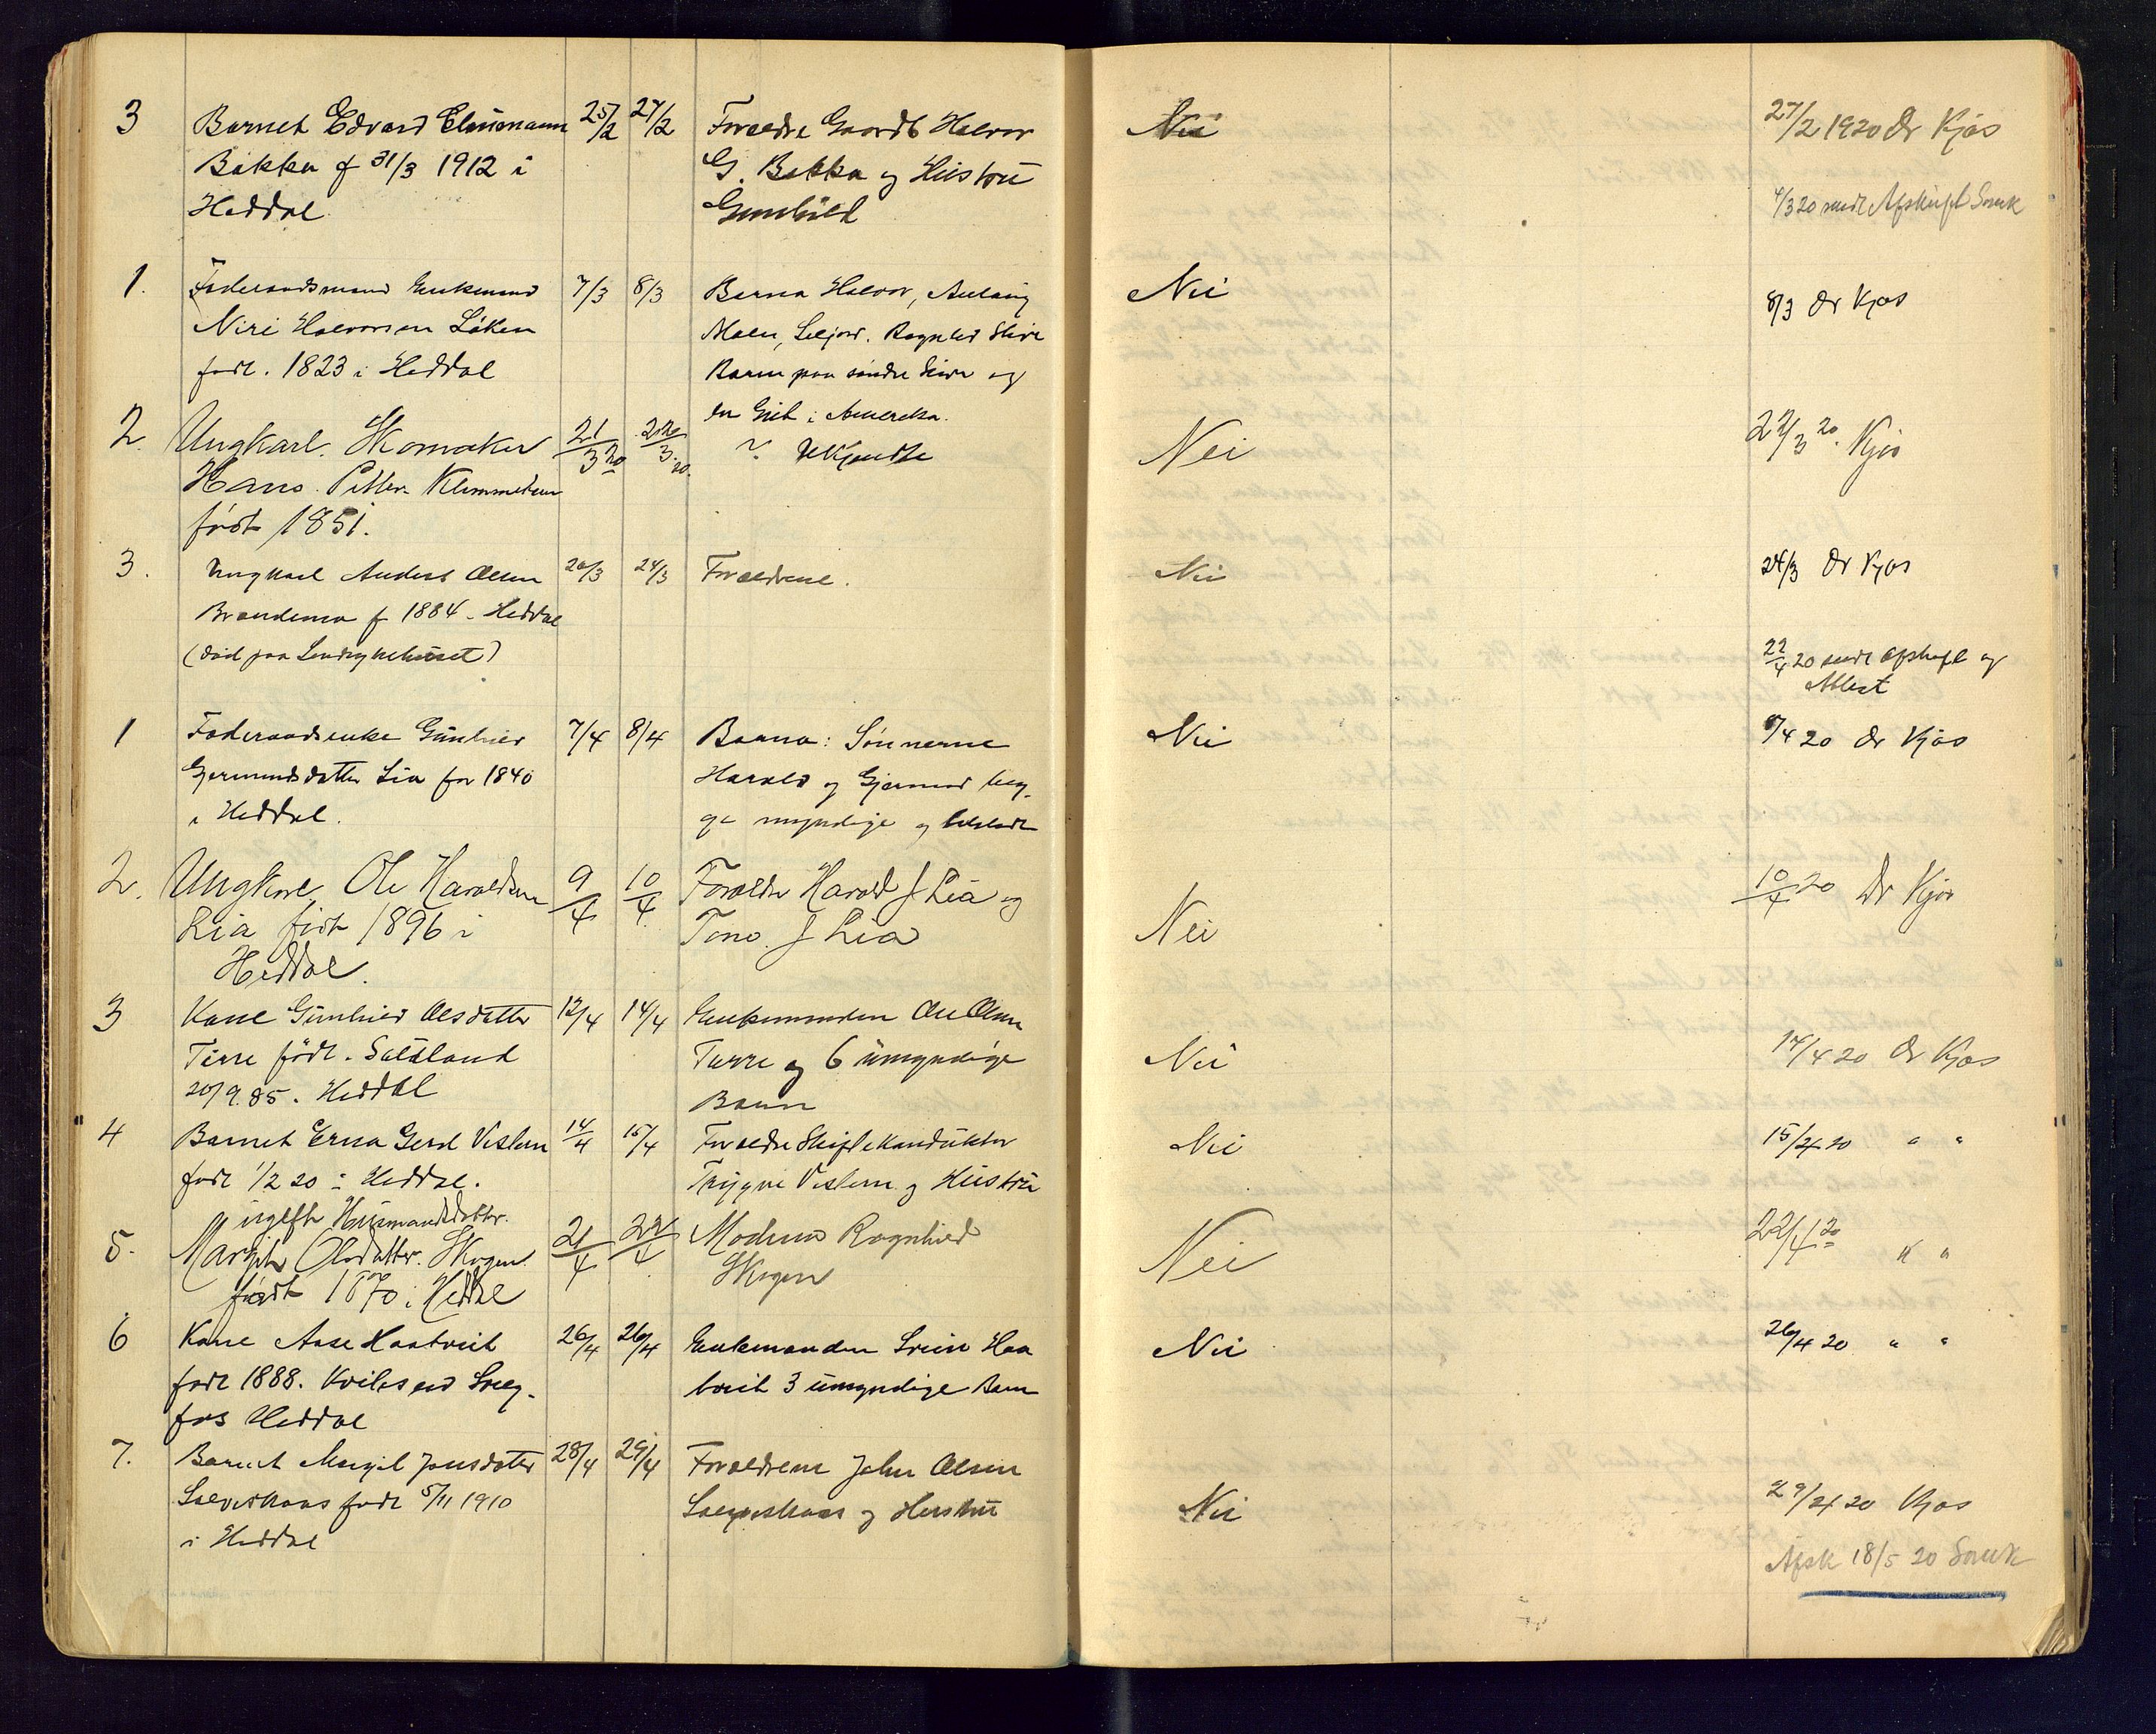 3 Barnet Edvard 25/2 27/2 Forældre Gaardb Halvor Nei 27/2 1920 Dr Kjos
Bakka f 31/3 1912 i G. Bakka og Hustru
Heddal Gunhild 4/3 20 sendt Afskrift
1. Føderaadsmand Enkemand 7/3 8/3 Barna Halvor, Nei 8/3 Dr Kjos
Niri Halvorsen Løken Seljord.
født. 1823 i Heddal Karen paa søndre og
en Gift i Amerika.
2. Ungkarl. Skomaker 21/3 20 22/3 20. ? Ukjendte Nei 22/3 20. Kjos
Hans. Petter Klemmetsen
født 1851.
3. Ungkarl Anders Olsen 20/3 24/3 Forældrene. Nei 24/3 Dr Kjos
f 1884 - Heddal
(død paa 22/4 20 sendt Afskrift og
Attest
1 Føderaadsenke Gunhild 7/4 8/4 Barna: Sønnerne Nei 8/4 20 Dr Kjos
Gjermundsdatter Lia før 1840 Harald og Gjermund beg-
i Heddal. ge myndige og
2. Ungkarl Ole Haraldsen 9/4 10/4 Forældre Harald J Lia og Nei 10/4 20 Dr Kjos
Lia født 1896 i Tone. J Lia
Heddal.
3 Kone Gunhild Olsdatter 12/4 14/4 Enkemanden Ole Olsen Nei 14/4 20 Dr Kjos
født. Sataland og 6 umyndige
20/9.85. Heddal Barn
4 Barnet Erna Gerd Veslem 14/4 15/4 Forældre Skiftekonduktør Nei 15/4 20 " "
født 1/2 20 i Heddal. Trygve Veslem og Hustru
ugift Husmandsdatter.
5. Margit Olsdatter. Skogen 21/4 22/4 Moderen Ragnhild Nei 22/4 20 " "
født 1870 i Heddal Skogen
6 Kone Aase Haatveit 26/4 26/4 Enkemanden Svein Haa Nei 26/4 20 " "
født 1888. ved Svelg- tveit 3 umyndige Barn
fos Heddal
7. Barnet Margit Jonsdatter 28/4 29/4 Forældrene John Olsen Nei 29/4 20 Kjos
født 5/11 1910 og Hustru
i Heddal Afsk 18/5 20